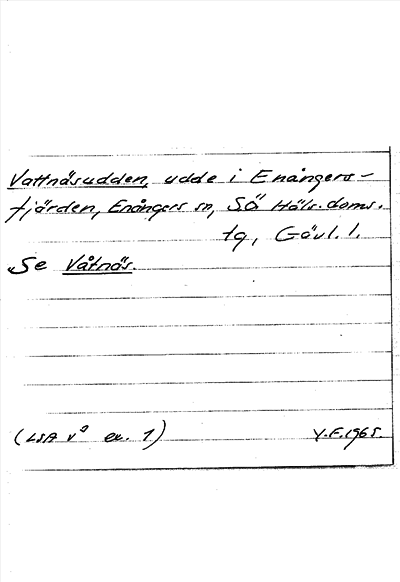 Vattnäsudden, udde i Enångers-
fjärden, Enångers sn, Sö Häls. doms.
tg, Gävl. l.
Se Våtnäs.
(LSA v⁹ ex. 1) Y.F. 1965.